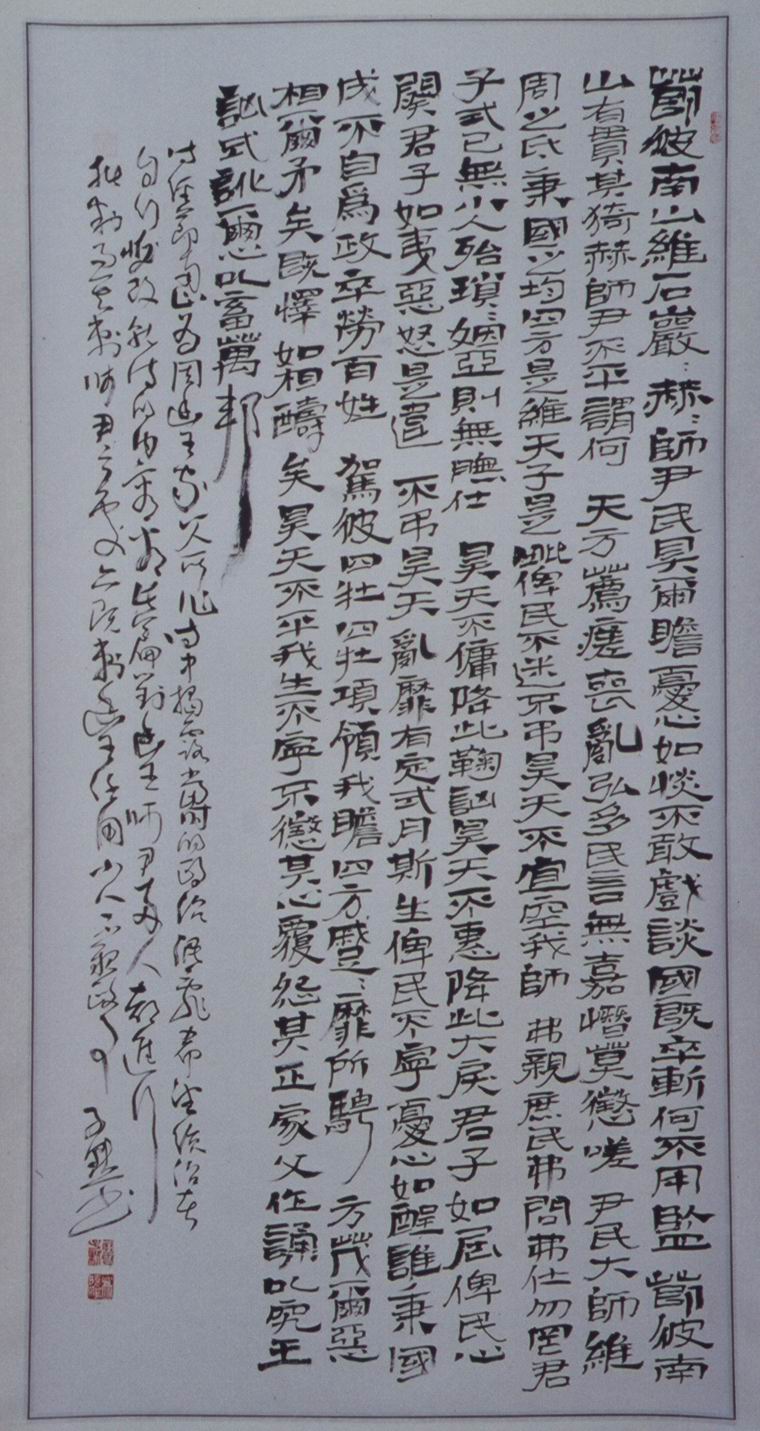 節彼南山維石巖〻赫〻師尹民具爾瞻憂心如惔不敢戲談國既卒斬何不用監 節彼南
山有實其猗赫師尹不平謂何 天方薦瘥喪亂弘多民言無嘉憯莫懲嗟 尹氏大師維
周之氐秉國之均四方是維天子是毗俾民不迷不弔昊天不宜空我師 弗親庶民弗問弗仕勿罔君
子式已無小人殆瑣〻姻亞則無膴仕 昊天不傭降此鞠訩昊天不惠降此大戾君子如屆俾民心
闋君子如夷惡怒是違 不弔昊天亂靡有定式月斯生俾民不寧憂心如酲誰秉國
成不自爲政卒勞百姓 駕彼四牡四牡項領我瞻四方蹙〻靡所騁 方茂爾惡
相爾矛矣既懌如相醻矣昊天不平我生不寧不懲其心覆怨其正家父作誦以究王
訩式訛爾心以畜萬邦
爲周幽王家父所作詩中揭露當時的政治混亂希望統治者
自行改詩的內容對幽王師尹人都進行
批刺師尹刺幽王任用小人不親政